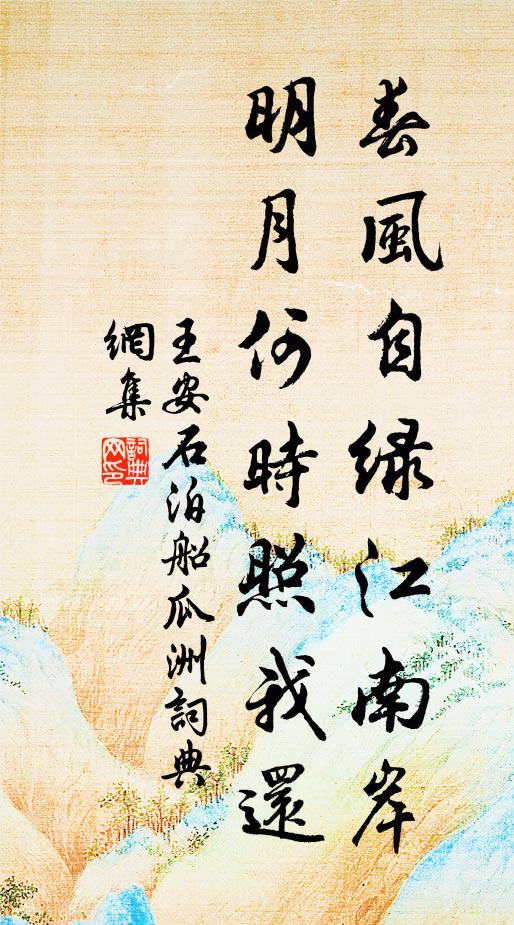 春風自绿江南岸
明月何時照我還
王安石泊船瓜洲詞典
網集
詞典
网印